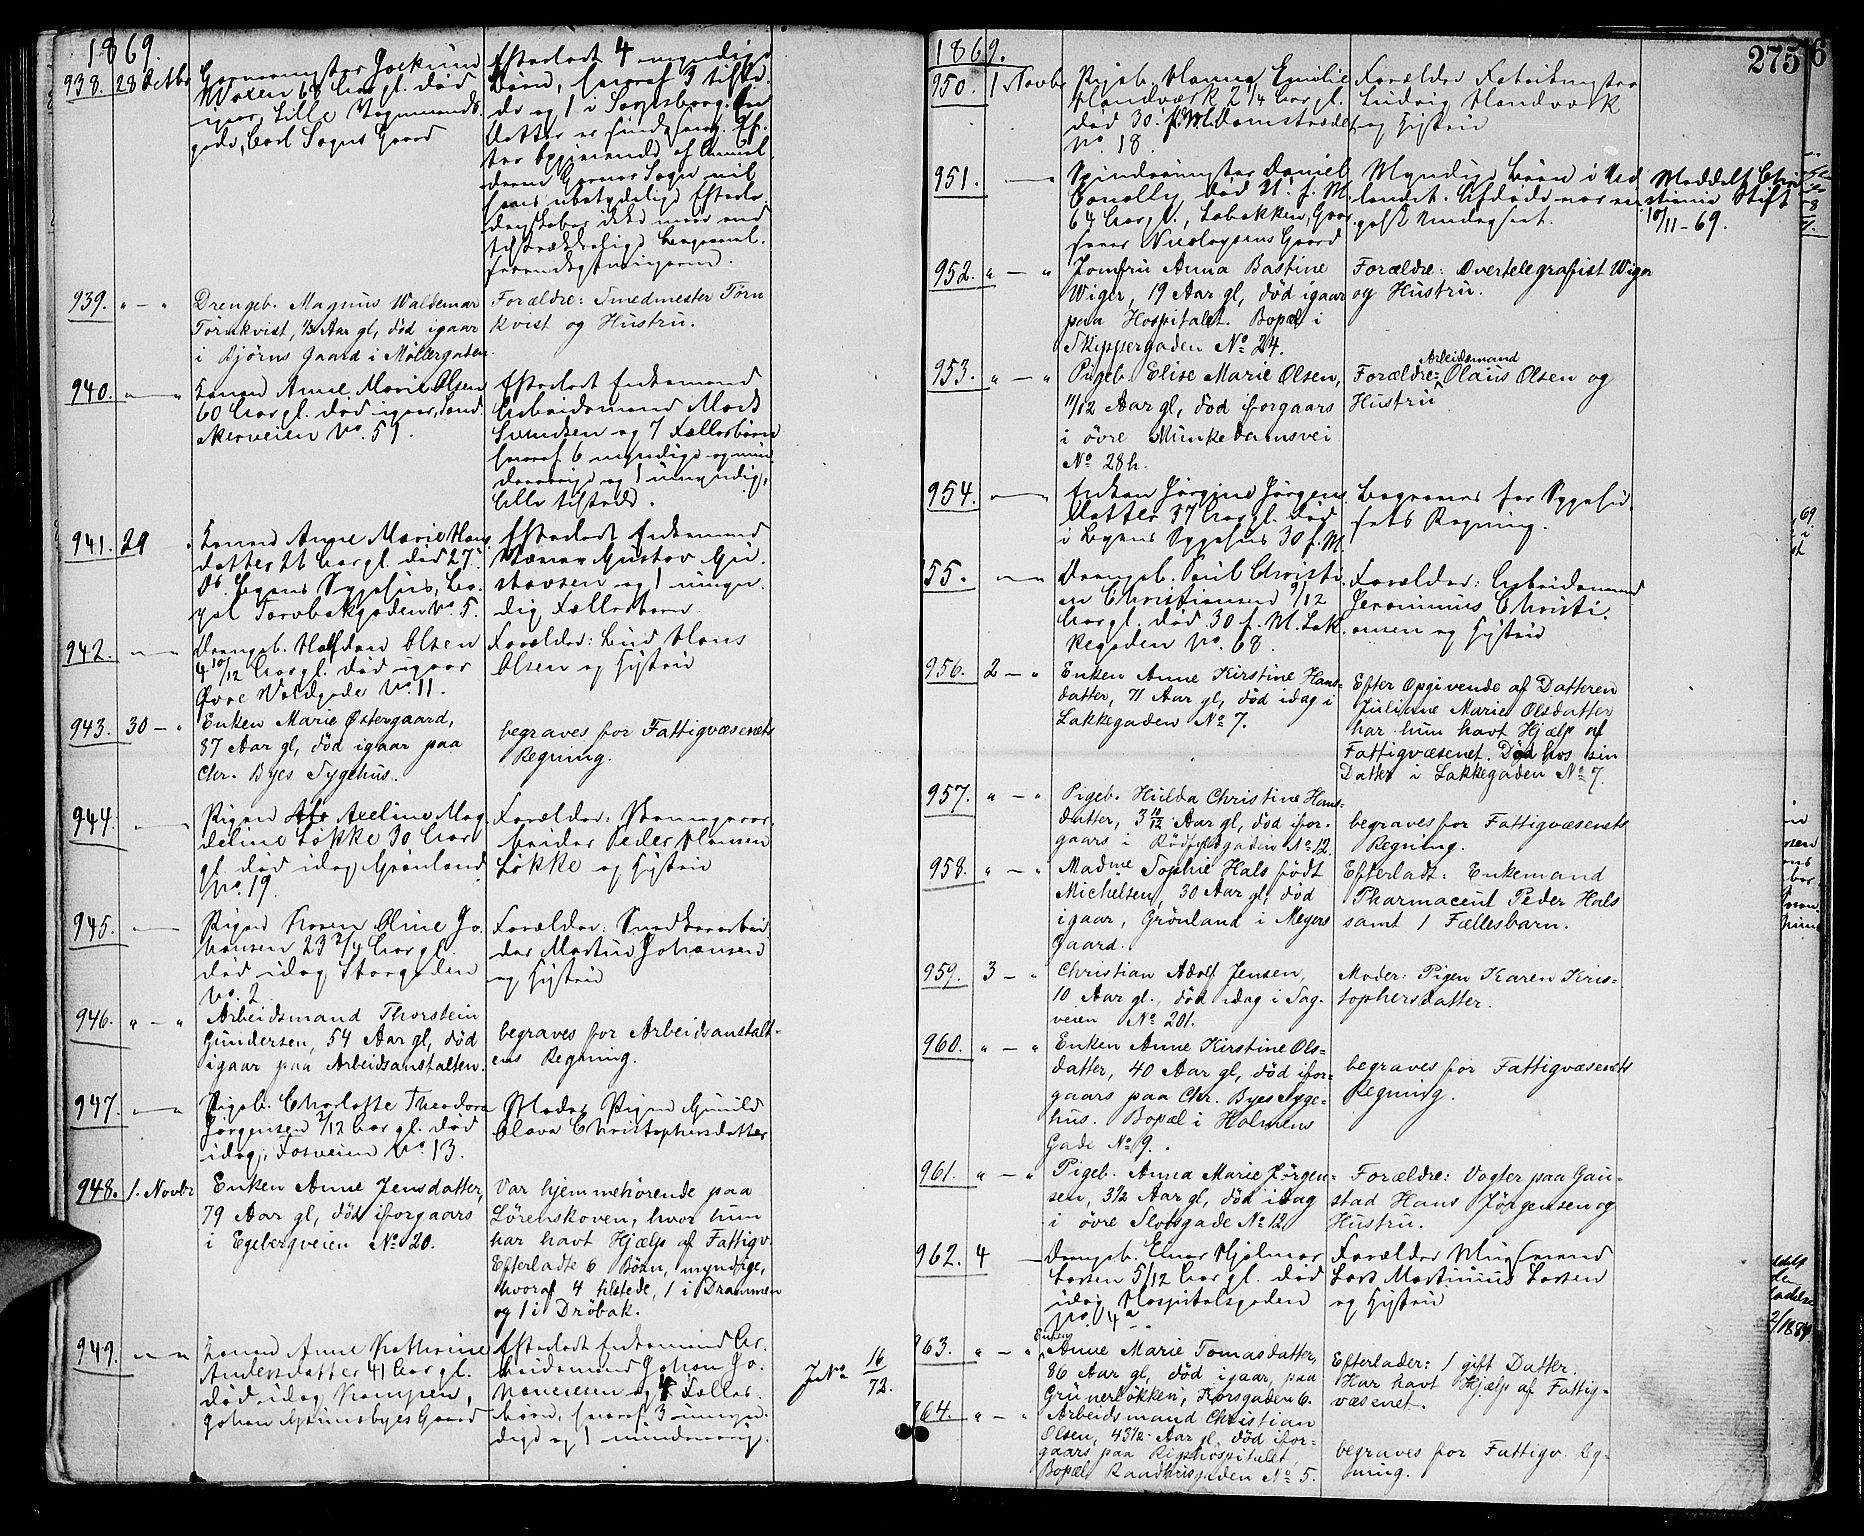 1869.
938. 28 Octbr
Woxen 68 Aar gl. død
Efterladt 4 myndige
Børn, hvoraf 3 tilste-
de og 1 i Sarpsborg. En
Datter er sindssvag. Ef-
939. " — "
Drengeb. Magnus Waldemar
Törnkvist, 1/3 Aar gl, död igaar
i Björns Gaard i Möllergaden.
Forældre: Smedmester Törn
kvist og Hustru.
940. " — "
Konen Anne Marie Olsen
60 Aar gl. død igaar, Sand-
akerveien No. 51.
Efterladt Enkemand
Arbeidsmand
Svendsen og 7 Fællesbørn
hvoraf 6 myndige og min-
dreaarige og 1 umyndig,
Alle tilstede.
941. 29
Konen Anne Marie Hans
datter Aar gl. død 27.
ds. Byens Sygehus, Bo-
pæl Torvbakgaden No. 5.
Efterladt Enkemand
Gustav Gu-
stavsen og 1 umyn-
dig Fællesbarn.
942. " — "
Drengeb. Halfdan Olsen
4 10/12 Aar gl. død igaar
Øvre Voldgade No. 11.
Forældre: Hans
Olsen og Hustru
943. 30 — "
Enken Marie Østergaard,
87 Aar gl, död igaar paa
Chr. Byes Sygehus.
begraves for Fattigvæsenets
Regning.
944. " — "
Pigen Axeline Mag
deline Løkke 30 Aar
gl. død idag Grønland
No. 19.
Forældre:
beider Peder Hansen
Løkke og Hustru
945. " — "
Pigen Karen Oline Jo-
hansen 23 3/4 Aar gl.
død idag Storgaden
No. 2
Forældre: Snedkerarbei-
der Martin Johansen
og Hustru
946. " — "
Arbeidsmand Thorstein
Gundersen, 54 Aar gl, död
igaar paa Arbeidsanstalten.
begraves for Arbeidsanstalt-
ens Regning.
947. " — "
Pigeb. Charlotte Theodora
Jørgensen 2/12 Aar gl. død
idag, Fosveien No. 13.
Moder Pigen Gunild
Olava Christophersdatter
948. 1. Novbr
Enken Anne Jensdatter,
79 Aar gl, död iforgaars
i Egebergveien No 20.
Var hjemmehörende paa
Lörenskoven, hvor hun
har havt Hjælp af Fattigv.
Efterladte 6 Börn, myndige,
hvoraf 4 tilstede, 1 i Drammen
og 1 i Dröbak.
949. " — "
Konen Anne Kathrine
Andersdatter 41 Aar gl.
død idag Kampen,
Johan Gaard
Efterladt Enkemand Ar-
beidsmand Johan Jo-
hannesen og 4 Fælles-
børn, hvoraf 3 umyn-
dige og 1 mindreaarig.
J No 16/72.
1869.
275
950. 1 Novbr
Pigeb. Hanna Emilie
Handværk 2 1/4 Aar gl.
død 30. f. M. Damstrædet
No. 18.
Forældre Fabrikmester
Ludvig Handværk
og Hustru
951. " — "
Spindemester Daniel
Conolly, død 21. f. M.
64 Aar gl., Sabakken, Graa-
Nicolaysens Gaard
Myndige Børn i Ud-
landet. Afdøde var en-
gelsk Undersaat.
Meddelt Chri-
stiania Stift
10/11-69.
952. " — "
Jomfru Anna Bastine
Wiger, 19 Aar gl, död igaar
paa Hospitalet. Bopæl i
Skippergaden No 24.
Forældre: Overtelegrafist Wiger
og Hustru.
953. " — "
Pigeb. Elise Marie Olsen,
11/12 Aar gl, död iforgaars
i övre Munkedamsvei
No 28h.
Arbeidsmand
Forældre: Olaus Olsen og
Hustru
954. " — "
Enken Jørgine Jørgens
datter 37 Aar gl. død
i Byens Sygehus 30 f. M.
Begraves for Sygehu-
sets Regning.
55. " — "
Drengeb. Paul Christi-
an Christiansen 9/12
Aar gl. død 30 f. M. Lak-
kegaden No. 68.
Forældre: Arbeidsmand
Jeronimus Christi-
ansen og Hustru
956. 2 — "
Enken Anne Kirstine Hans-
datter, 71 Aar gl, död idag i
Lakkegaden No 7.
Efter Opgivende af Datteren
Juliane Marie Olsdatter
har hun havt Hjælp af
Fattigvæsenet. Död hos sin
Datter i Lakkegaden No 7
957. " — "
Pigeb. Hulda Christine Hans-
datter, 3 10/12 Aar gl, död ifor-
gaars i Rödfyldgaden No 12.
begraves for Fattigvæsenets
Regning.
958. " — "
Madme Sophie Hals födt
Michelsen, 30 Aar gl, död
igaar, Grönland i Meyers
Gaard.
Efterladt: Enkemand
Pharmaceut Peder Hals
samt 1 Fællesbarn.
959. 3 — "
Christian Adolf Jensen,
10 Aar gl., död idag i Sag-
veien No 201.
Moder: Pigen Karen Kris-
tophersdatter.
960. " — "
Enken Anne Kirstine Ols-
datter, 40 Aar gl, död ifor-
gaars paa Chr. Byes Syge-
hus. Bopæl i Holmens
Gade No 9.
begraves for Fattigvæsenets
Regning.
961. " — "
Pigeb. Anna Marie Jörgen-
sen, 3 1/2 Aar gl, död idag
i övre Slotsgade No 12.
Forældre: Vogter paa Gau-
stad Hans Jörgensen og
Hustru.
962. 4 —
Drengeb. Einar Hjalmar
Larsen 5/12 Aar gl. død
idag, Hospitalsgaden
No. 4a
Forældre Murmand
Lars Martinius Larsen
og Hustru
963. " — "
Enken
Anne Marie Tomasdatter,
86 Aar gl, död igaar, paa
Grünerlökken, Korsgaden 6.
Efterlader: 1 gift Datter
Har havt Hjælp af Fattig-
væsenet.
964. " — "
Arbeidsmand Christian
Olsen, 43 1/2 Aar gl, död ifor-
gaars paa Rigshospitalet,
Bopæl Raadhusgaden No 5.
begraves for Fattigv. Reg-
ning.